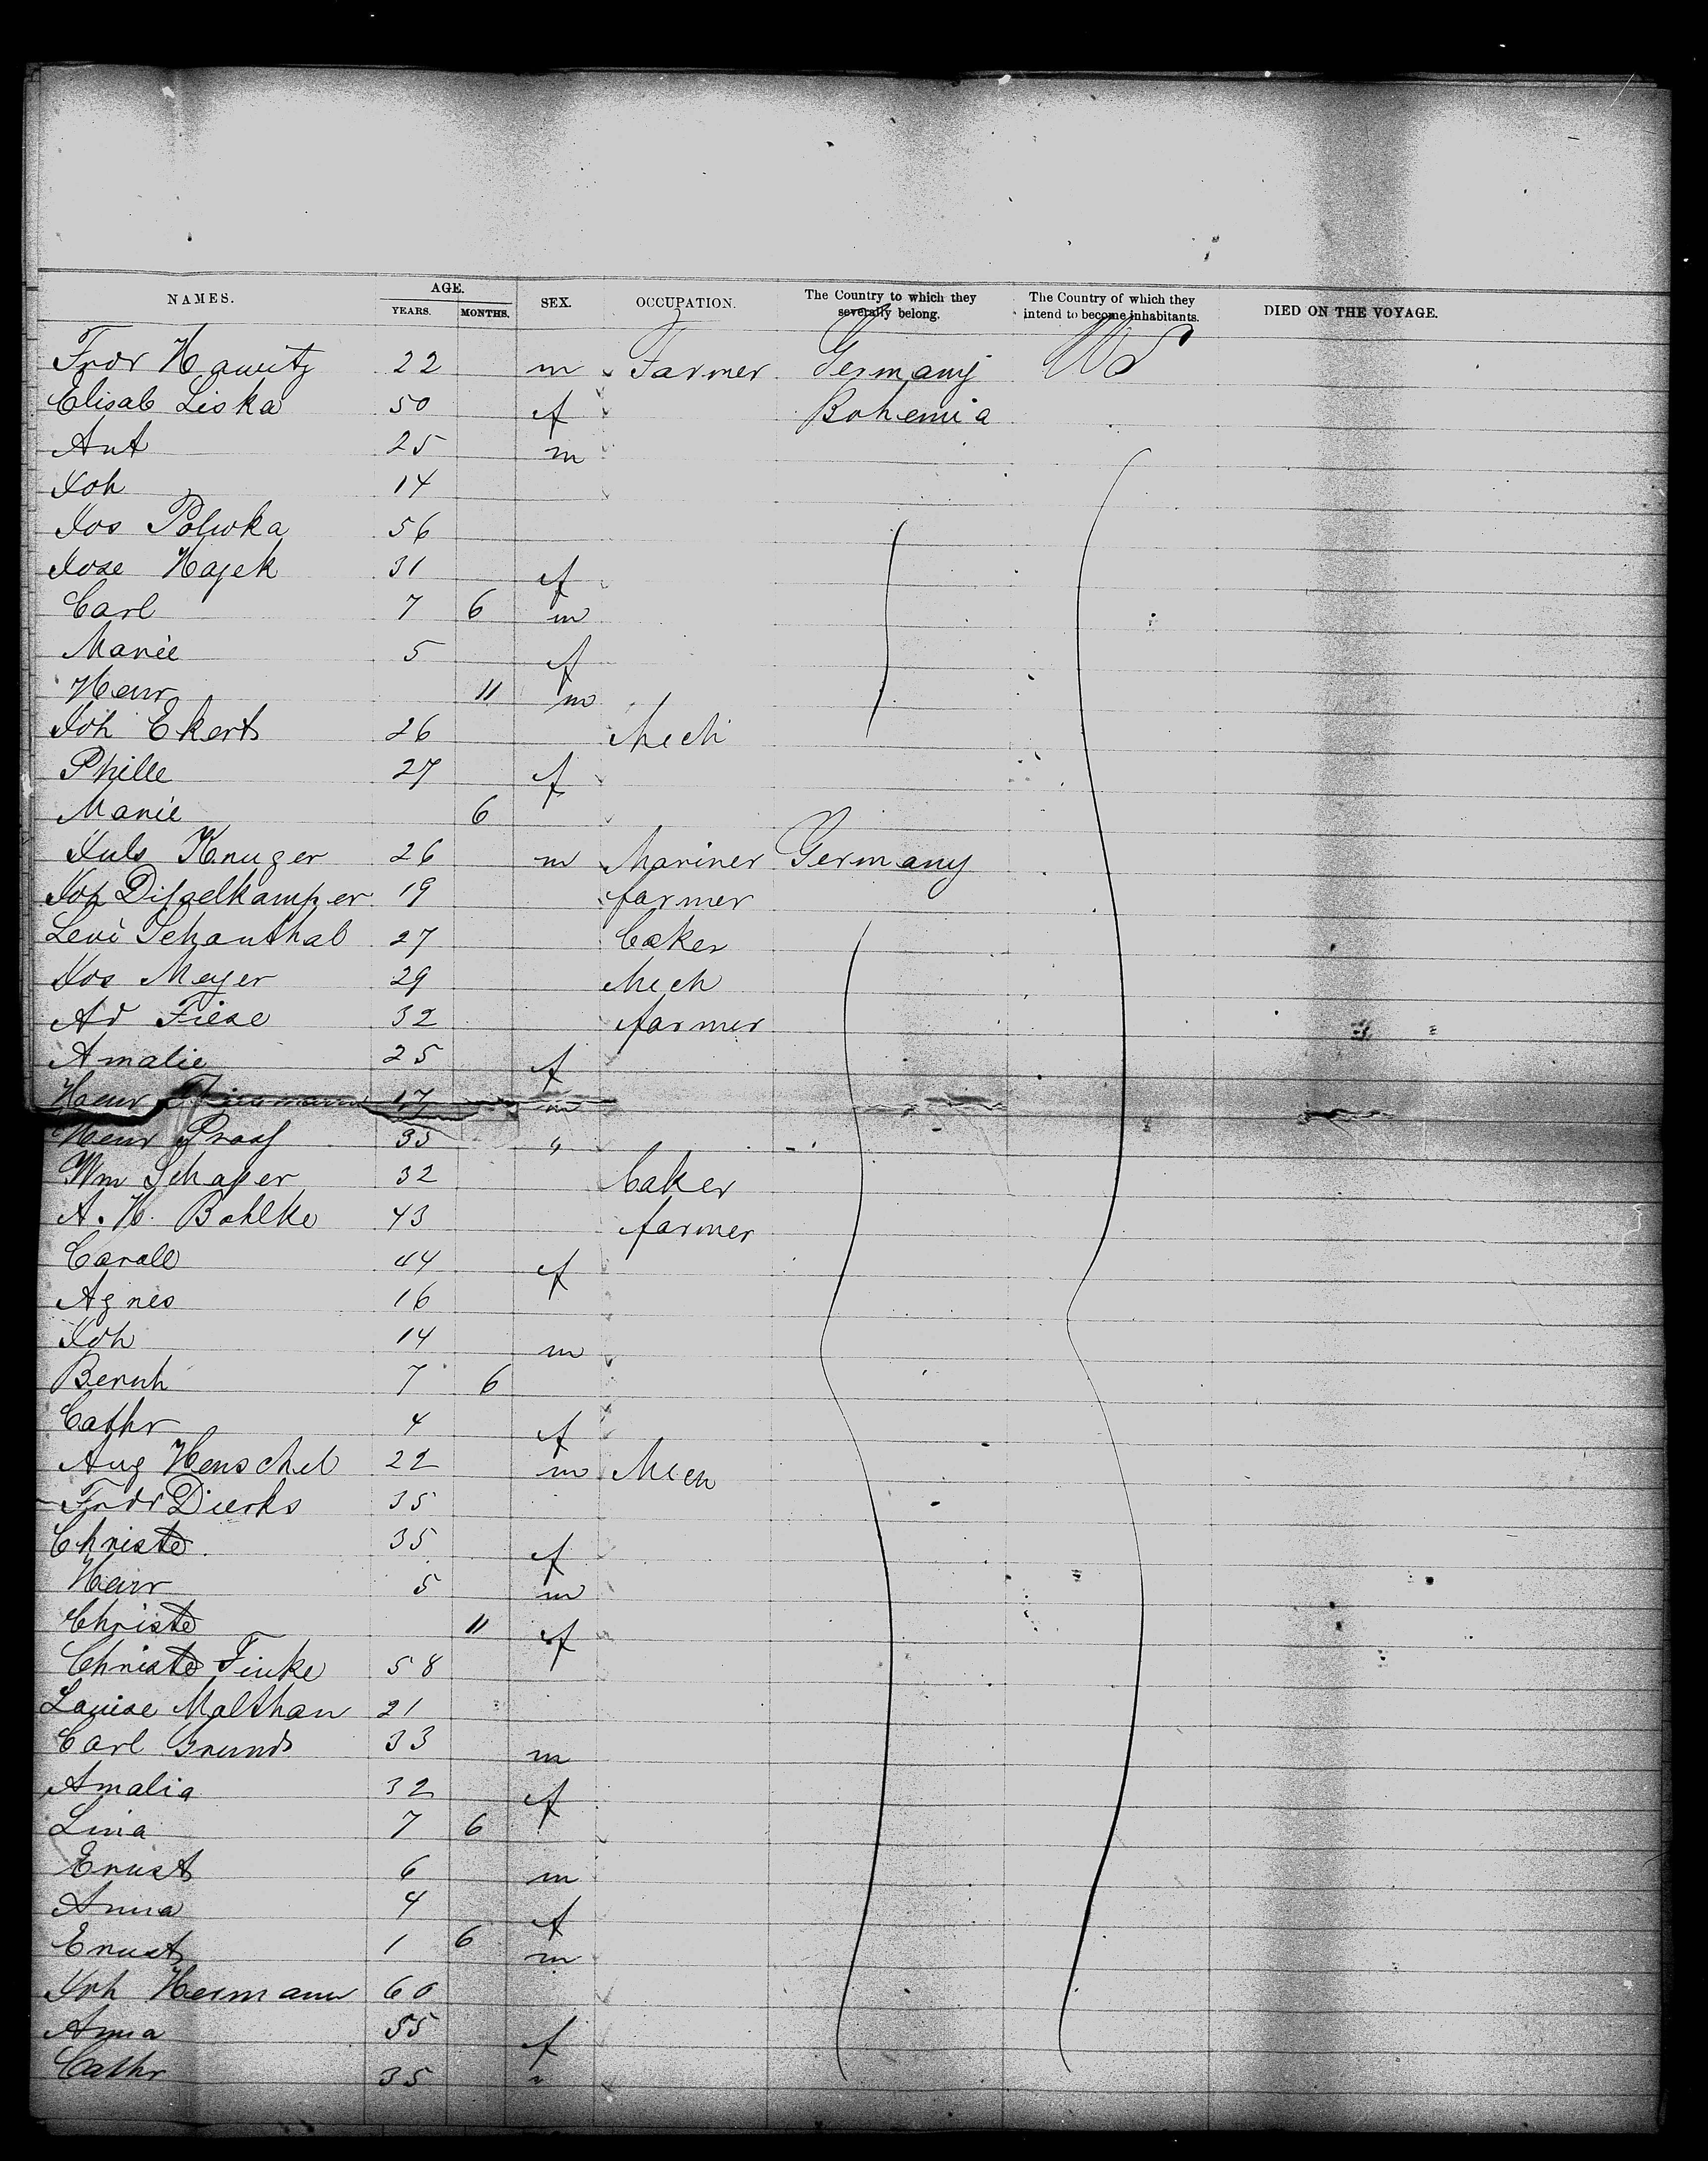 NAMES. AGE. YEARS. MONTHS. SEX. OCCUPATION. The Country to which they severally belong. The Country of which they intend to become inhabitants. DIED ON THE VOYAGE.
Fredr Hawitz 22 m Farmer Germany US
Elisab Liska 50 f Bohemia
Ant 25 m
Joh 14
Jos Poliwka 56
Jose Hajek 31 f
Carl 7 6 m
Marie 5 f
Henr 11 m
Joh Ekert 26 Mech
Phille 27 f
Marie 6
Juls Kruger 26 m Mariner Germany
Joh Disselkamper 19 farmer
Levi Schanthal 27 baker
Jos Meyer 29 Mech
Ad Fiese 32 farmer
Amalie 25 f
Henr 17 m
Henr Praaf 35 "
Wm Schaper 32 baker
A. H. Bohlke 43 farmer
Carole 44 f
Agnes 16
Joh 14 m
Bernh 7 6
Cathr 4 f
Aug Henschel 22 m Mech
Fredr Dierks 35
Christe 35 f
Henr 5 m
Christe 11 f
Christe Finke 58
Louise Malthan 21
Carl Grund 33 m
Amalia 32 f
Lina 7 6
Ernst 6 m
Anna 4 f
Ernst 1 6 m
Joh Hermann 60
Anna 55 f
Cathr 35 "